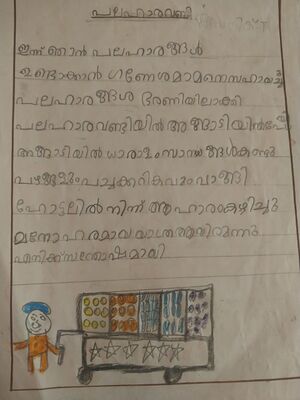 പലഹാരവണ്ടി
ഇന്ന് ഞാൻ പലഹാരങ്ങൾ
ഉണ്ടാക്കാൻ ഗണേശമാമനെ സഹായിച്ചു
പലഹാരങ്ങൾ ഭരണിയിലാക്കി
പലഹാരവണ്ടിയിൽ അങ്ങാടിയിൽപോയി
അങ്ങാടിയിൽ ധാരാളം സാധനങ്ങൾ കണ്ടു
പഴങ്ങളും പച്ചക്കറികളും വാങ്ങി
ഹോട്ടലിൽ നിന്ന് ആഹാരം കഴിച്ചു
മനോഹരമായ യാത്ര ആയിരുന്നു
എനിക്ക് സന്തോഷമായി